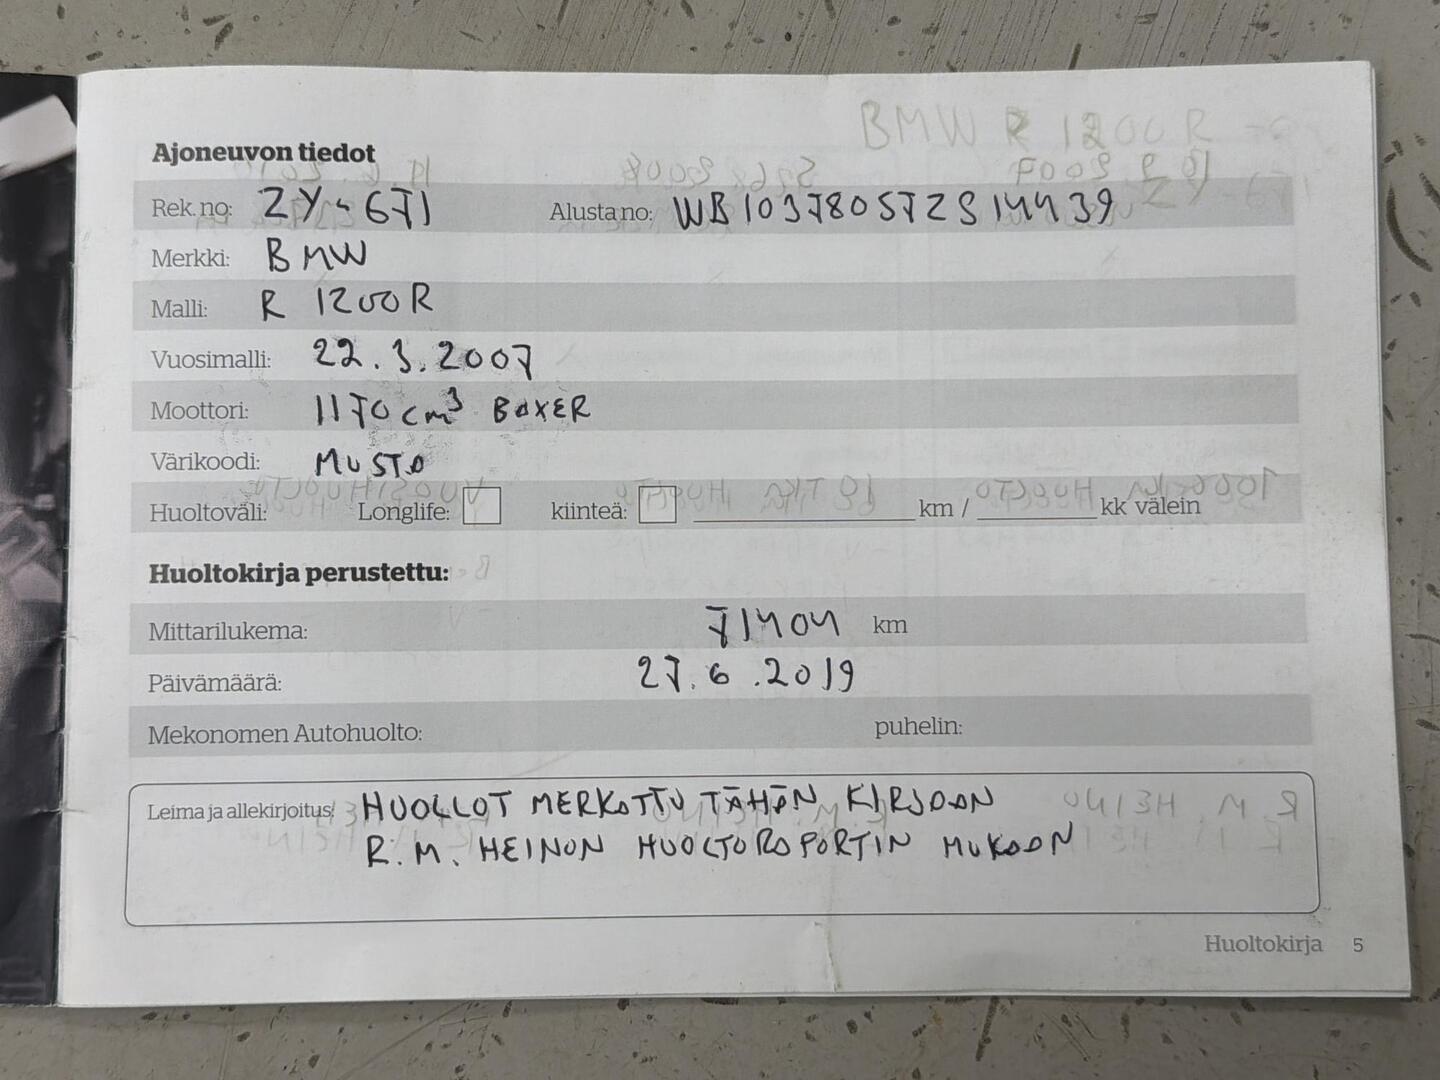 BMW R 1200R
Ajoneuvon tiedot
Rek. no: ZY-671 Alusta no: WB10378057ZS14439
Merkki: BMW
Malli: R 1200R
Vuosimalli: 22.3.2007
Moottori: 1170 cm³ BOXER
Värikoodi: MUSTA
Huoltoväli: Longlife: kiinteä: km / kk välein
Huoltokirja perustettu:
Mittarilukema: 71404 km
Päivämäärä: 27.6.2019
Mekonomen Autohuolto: puhelin:
Leima ja allekirjoitus: HUOLLOT MERKATTU TÄHÄN KIRJAAN
R.M. HEINON HUOLTORAPORTIN MUKAAN
Huoltokirja 5